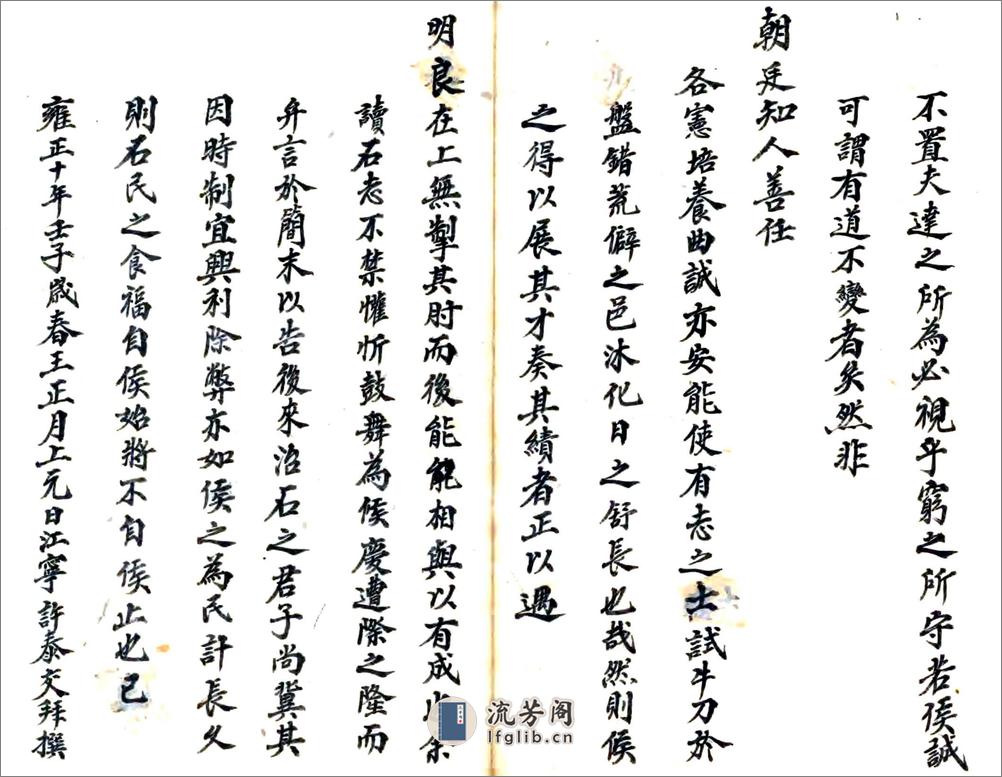 不置夫達之所為必視乎窮之所守若侯誠
可謂有道不變者矣然非
朝廷知人善任
各憲培養曲誠亦安能使有志之士試牛刀於
盤錯荒僻之邑沐化日之舒長也哉然則侯
之得以展其才奏其績者正以遇
明良在上無掣其肘而後能能相與以有成也余
讀石志不禁懽忻鼓舞為侯慶遭際之隆而
弁言於簡末以告後來治石之君子尚冀其
因時制宜興利除弊亦如侯之為民計長久
則石民之食福自侯始將不自侯止也已
雍正十年壬子歲春王正月上元日江寧許泰交拜撰
流芳阁
lfglib.cn